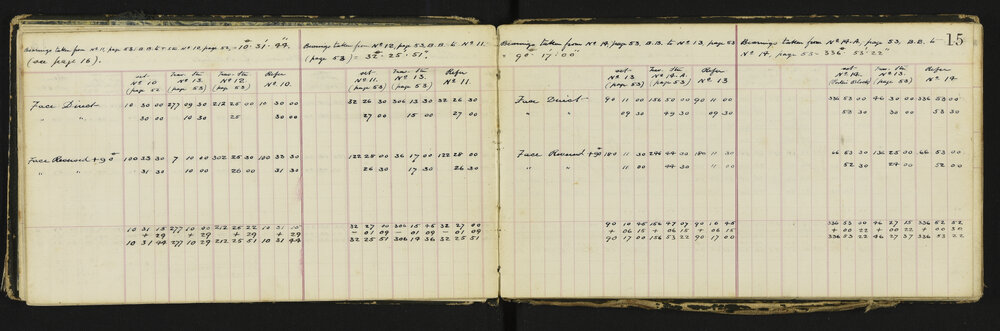 Bearings taken from Nº 11, page 53, B.B. to Nº 10, page 52, = 10° 31' 44"
(see page 16).
set Trav. Stn Trav. Stn Refer
Nº 10 Nº 13. Nº 12. Nº 10.
(page 52 (page 53) (page 53)
Face Direct 10 30 00 277 09 30 212 25 00 10 30 00
" " 30 00 10 30 25 30 00
Face Reversed + 90° 100 33 30 7 10 00 302 25 30 100 33 30
" " 31 30 10 00 26 00 31 30
10 31 15 277 10 00 212 25 22 10 31 15
+ 29 + 29 + 29 + 29
10 31 44 277 10 29 212 25 51 10 31 44
Bearings taken from Nº 12, page 53, B.B. to Nº 11.
(page 53) = 32° 25' 51".
set Trav. Stn Refer
Nº 11. Nº 13. Nº 11.
(page 53) (page 53)
32 26 30 306 13 30 32 26 30
27 00 15 00 27 00
122 28 00 36 17 00 122 28 00
26 30 17 30 26 30
32 27 00 306 15 45 32 27 00
- 01 09 - 01 09 - 01 09
32 25 51 306 14 36 32 25 51
Bearings taken from Nº 14, page 53, B.B. to Nº 13, page 53
= 90° 17' 00"
set Trav. Stn Refer
Nº 13 Nº 14.A. Nº 13
(page 53) (page 53)
Face Direct 90 11 00 156 50 00 90 11 00
" " 09 30 49 30 09 30
Face Reversed + 90° 180 11 30 246 44 00 180 11 30
" " 11 00 44 30 11 00
90 10 45 156 47 07 90 10 45
+ 06 15 + 06 15 + 06 15
90 17 00 156 53 22 90 17 00
Bearings taken from Nº 14.A, page 53, B.B. to
Nº 14, page 53 = 336° 53' 22"
15
set Trav. Stn Refer
Nº 14. Nº 13. Nº 14
(page 53)
336 53 00 46 30 00 336 53 00
53 30 30 00 53 30
66 53 00 136 25 00 66 53 00
52 30 24 00 52 00
336 53 00 46 27 15 336 52 52
+ 00 22 + 00 22 + 00 30
336 53 22 46 27 37 336 53 22